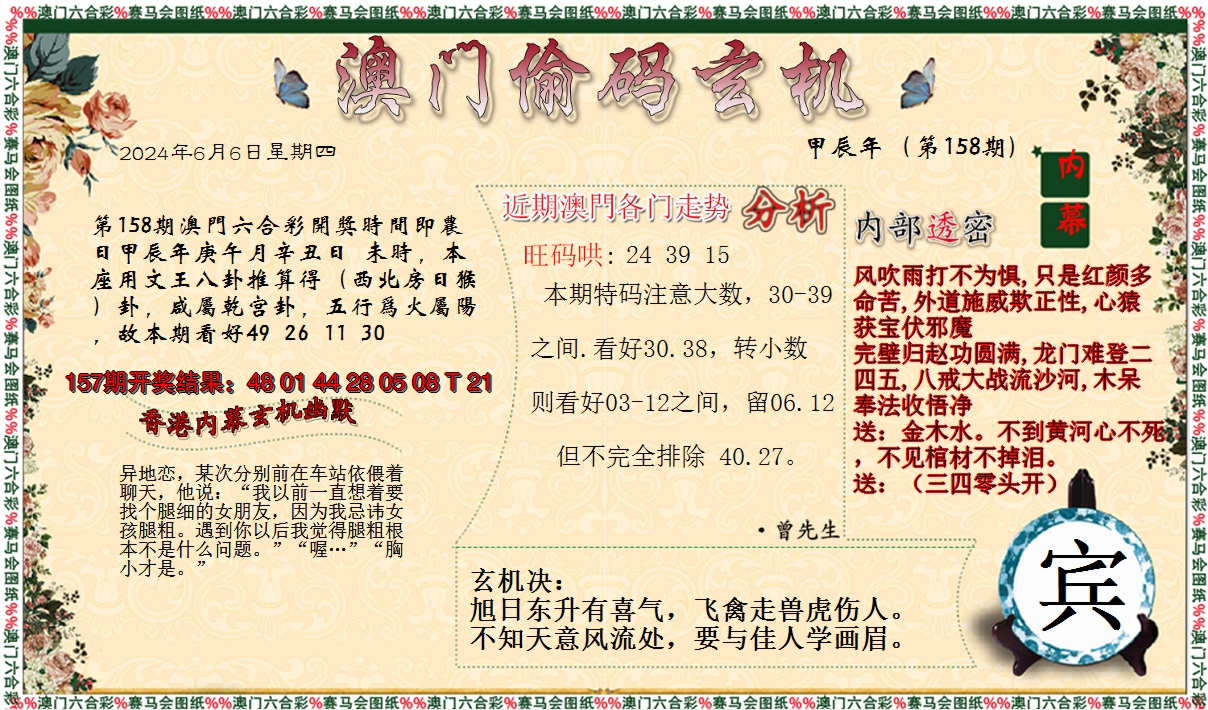 %%澳门六合彩%赛马会图纸%%澳门六合彩%赛马会图纸%%澳门六合彩%赛马会图纸%%澳门六合彩%赛马会图纸%%澳门六合彩%赛马会图纸%%澳门六合彩%赛马会图纸%%
澳门偷码玄机
2024年6月6日星期四
甲辰年（第158期）
内幕
第158期澳門六合彩開獎時間即農
日甲辰年庚午月辛丑日 未時，本
座用文王八卦推算得（西北房日猴
）卦，咸屬乾宮卦，五行爲火屬陽
，故本期看好49 26 11 30
157期开奖结果：48 01 44 28 05 08 T 21
香港内幕玄机幽默
异地恋，某次分别前在车站依偎着
聊天，他说：“我以前一直想着要
找个腿细的女朋友，因为我忌讳女
孩腿粗。遇到你以后我觉得腿粗根
本不是什么问题。”“喔…”“胸
小才是。”
近期澳門各门走势 分析
旺码哄: 24 39 15
本期特码注意大数，30-39
之间.看好30.38，转小数
则看好03-12之间，留06.12
但不完全排除 40.27。
·曾先生
内部透密
风吹雨打不为惧,只是红颜多
命苦,外道施威欺正性,心猿
获宝伏邪魔
完璧归赵功圆满,龙门难登二
四五,八戒大战流沙河,木呆
奉法收悟净
送：金木水。不到黄河心不死
，不见棺材不掉泪。
送：（三四零头开）
玄机决：
旭日东升有喜气，飞禽走兽虎伤人。
不知天意风流处，要与佳人学画眉。
宾
%%澳门六合彩%赛马会图纸%%澳门六合彩%赛马会图纸%%澳门六合彩%赛马会图纸%%澳门六合彩%赛马会图纸%%澳门六合彩%赛马会图纸%%澳门六合彩%赛马会图纸%%